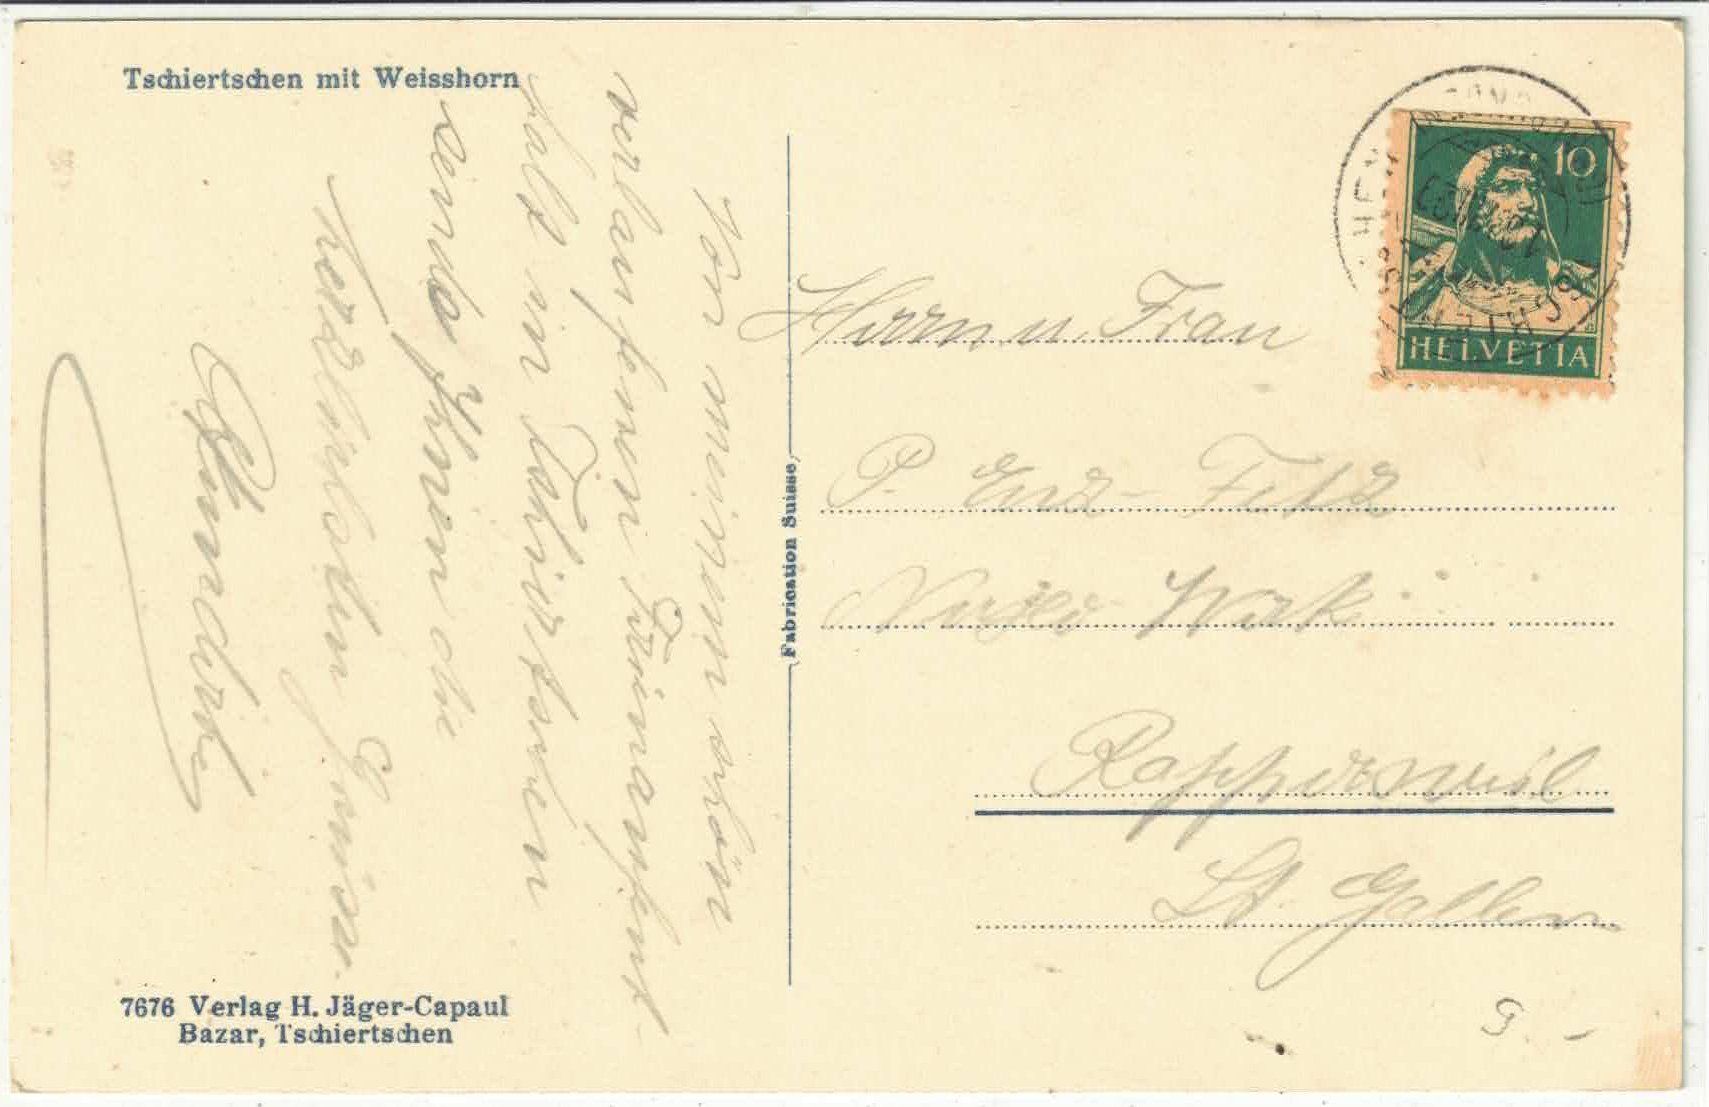 Tschiertschen mit Weisshorn
Von meinem schön
verlaufenen Ferienaufent-
halt in Tschiertschen
sende Ihnen die
herzlichsten Grüsse.
7676 Verlag H. Jäger-Capaul
Bazar, Tschiertschen
Fabrication Suisse
10
HELVETIA
Herrn u. Frau
P. Enz-Fetz
Rapperswil
St. Gallen
9.-